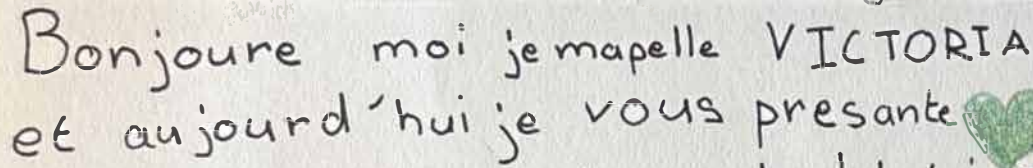 Bonjoure moi je mapelle VICTORIA
et aujourd'hui je vous presante